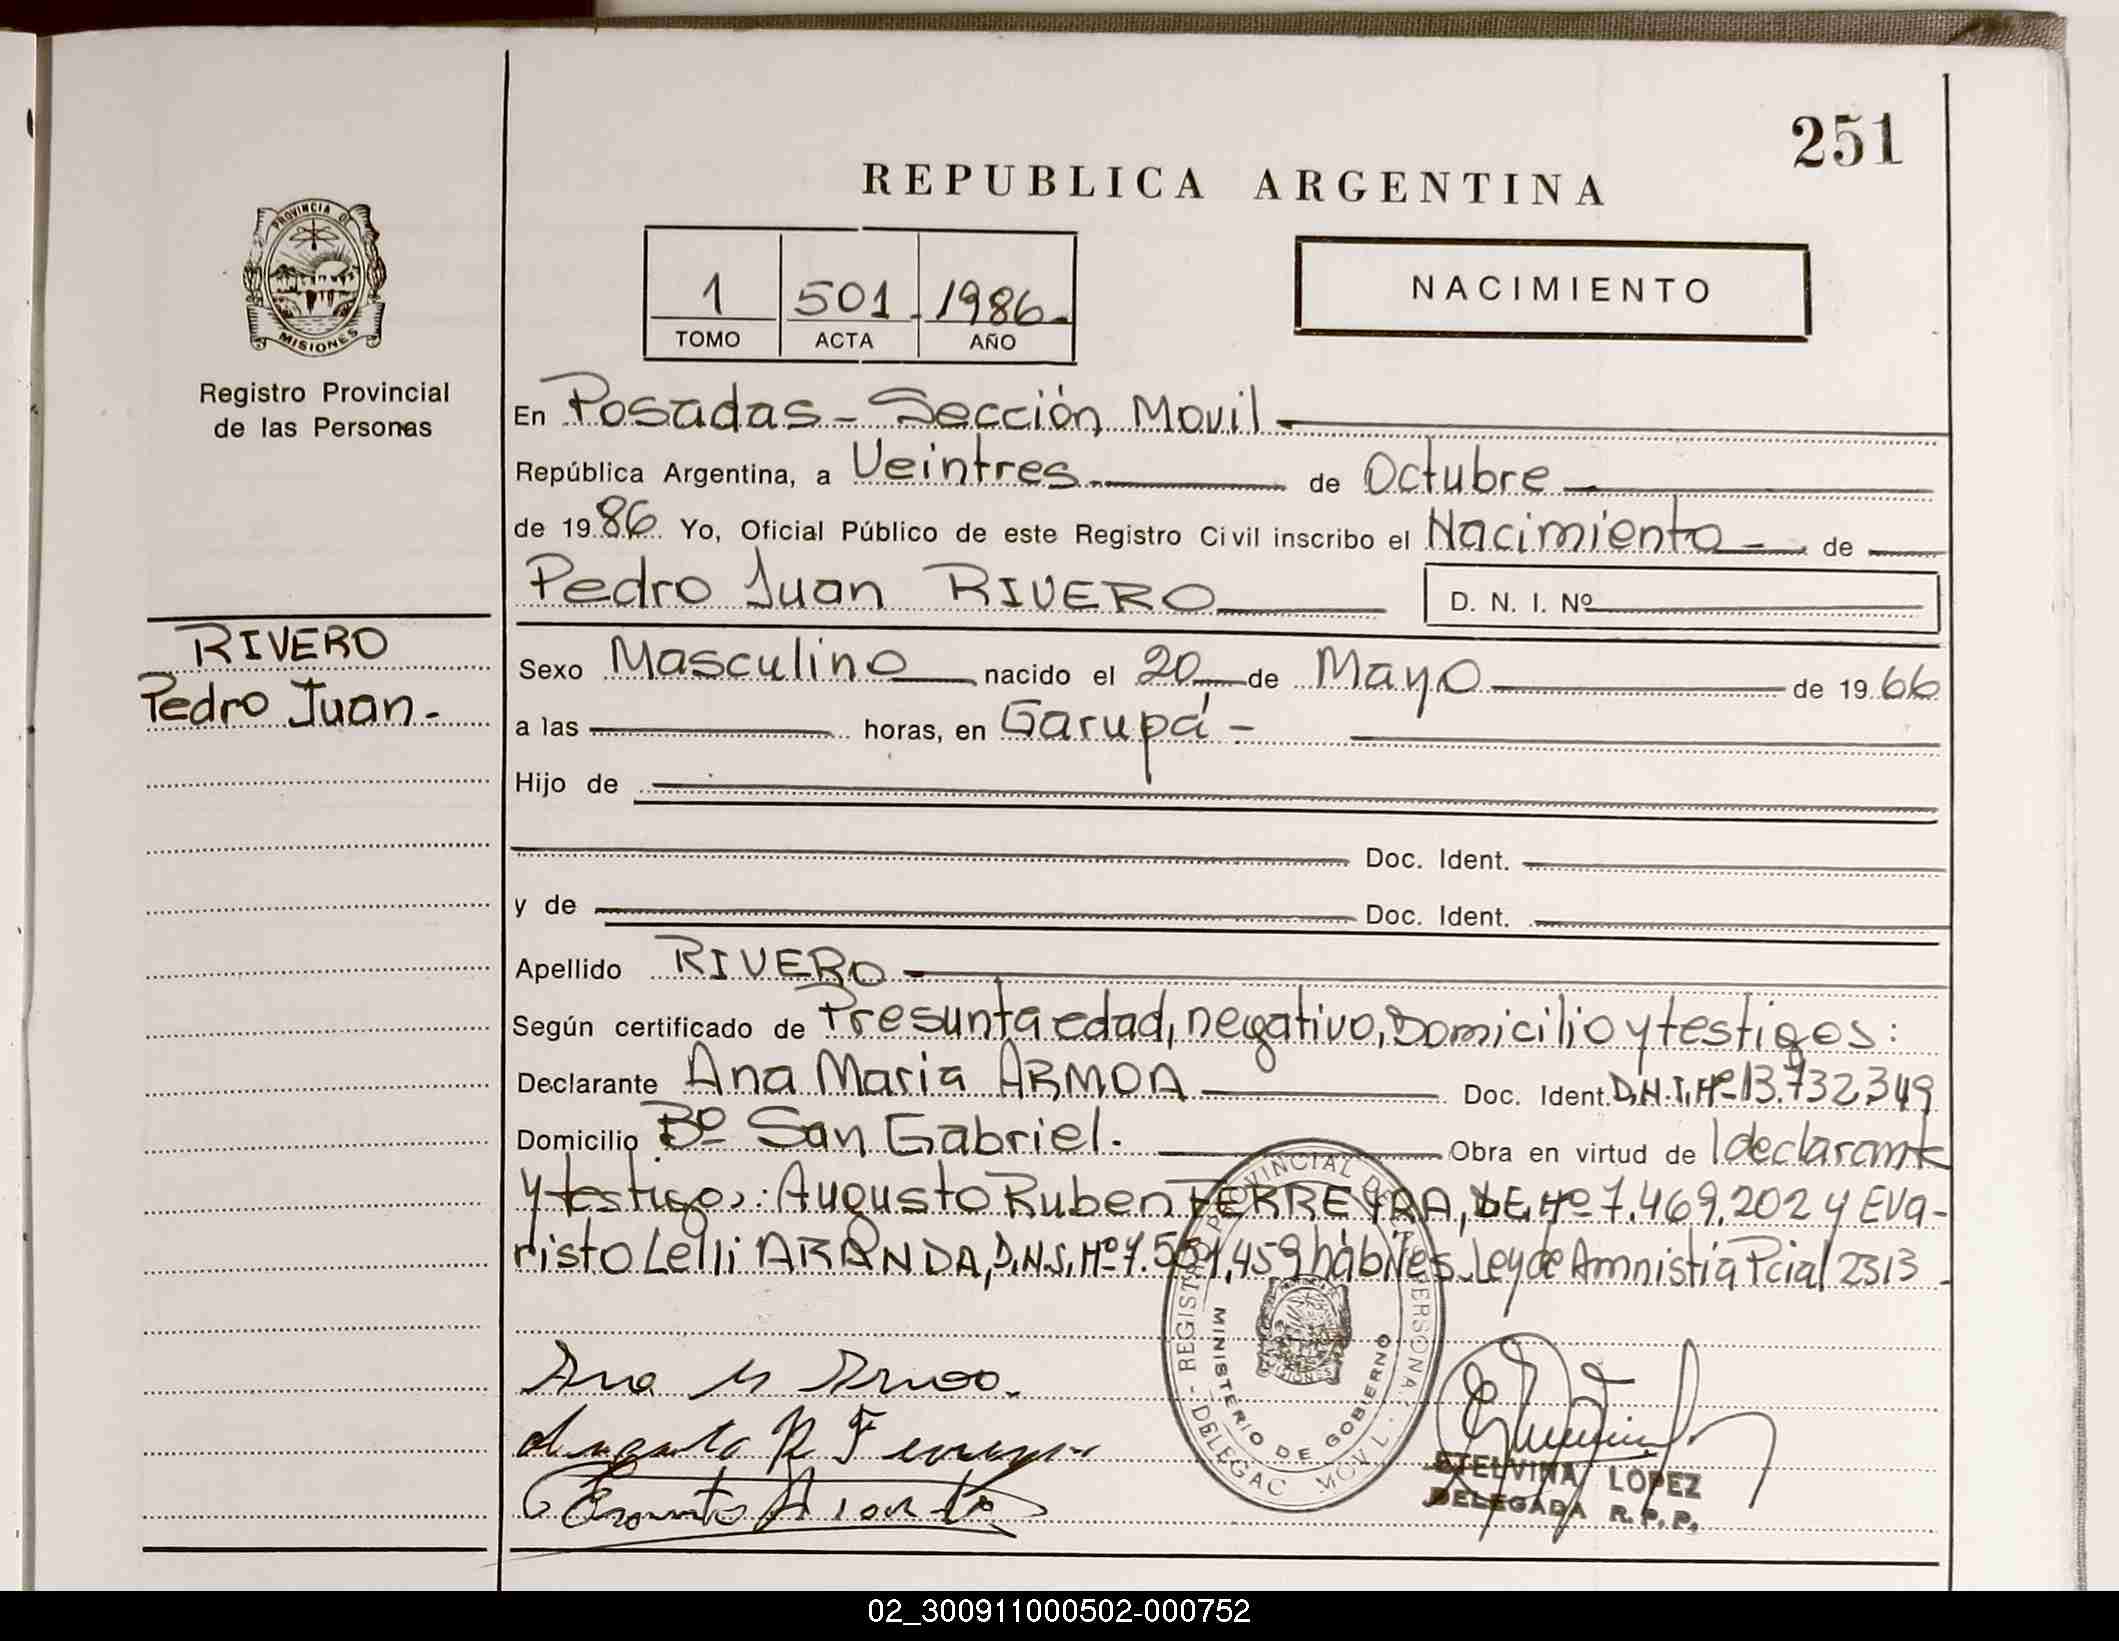 251
REPUBLICA ARGENTINA
PROVINCIA DE
MISIONES
Registro Provincial
de las Personas
1 501 1986
TOMO ACTA AÑO
NACIMIENTO
En Posadas - Sección Movil
República Argentina, a Veintres de Octubre
de 1986 Yo, Oficial Público de este Registro Civil inscribo el Nacimiento de
Pedro Juan RIVERO D. N. I. Nº
RIVERO
Pedro Juan.-
Sexo Masculino nacido el 20 de Mayo de 1966
a las horas, en Garupá -
Hijo de
Doc. Ident.
y de Doc. Ident.
Apellido RIVERO
Según certificado de Presunta edad, negativo, Domicilio y testigos:
Declarante Ana Maria ARMOA Doc. Ident. D.N.I. Nº 13.732.349
Domicilio Bº San Gabriel. Obra en virtud de l declarante
y testigos: Augusto Ruben FERREYRA, Nº 7.469.202 y Eva-
risto Lelli ARANDA, D.N.I. Nº hábiles. Ley de Amnistía Pcial 2313
REGISTRO PROVINCIAL DE LAS PERSONAS
MINISTERIO DE GOBIERNO
DELEGAC MOVIL
Ana M Armoa.
ETELVINA LOPEZ
DELEGADA R.P.P.
02_300911000502-000752